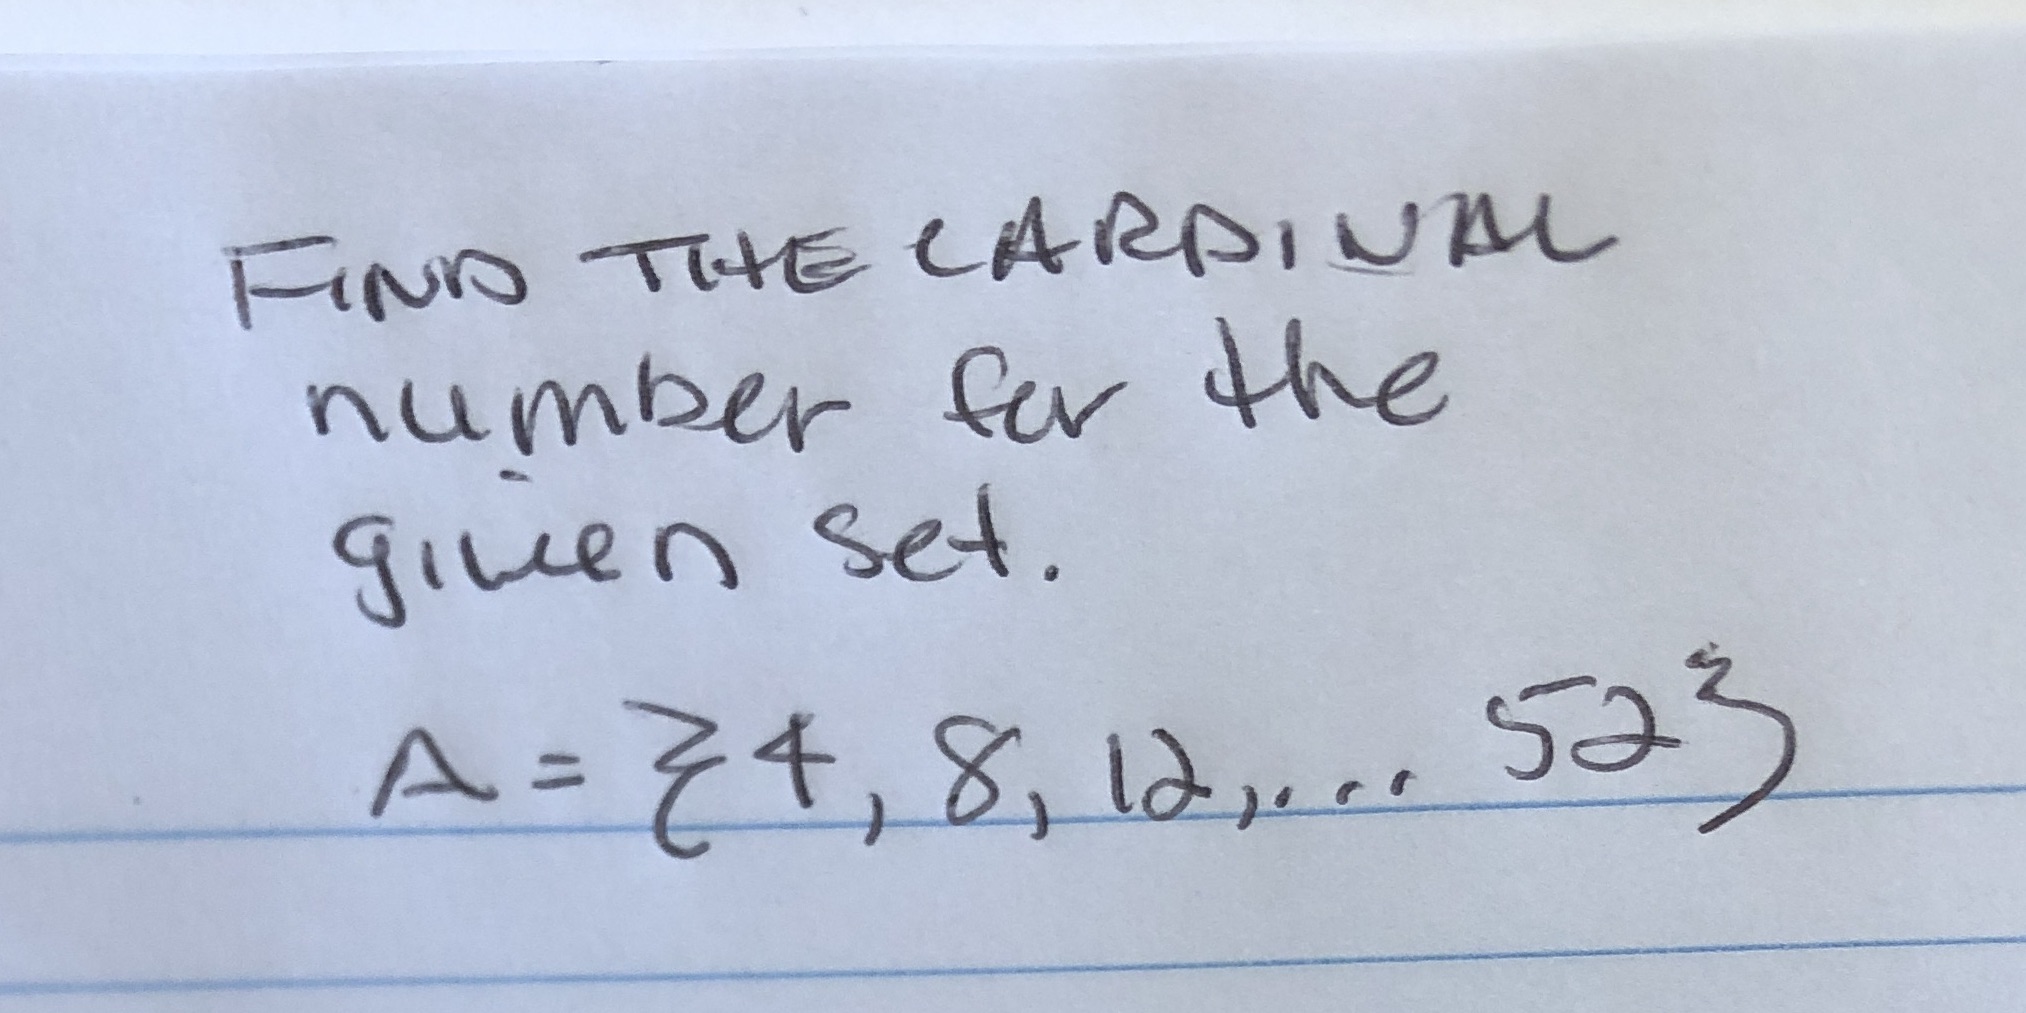 FIND THE CARDINAL
number for the
given set.
A = {4, 8, 12, ... 52}